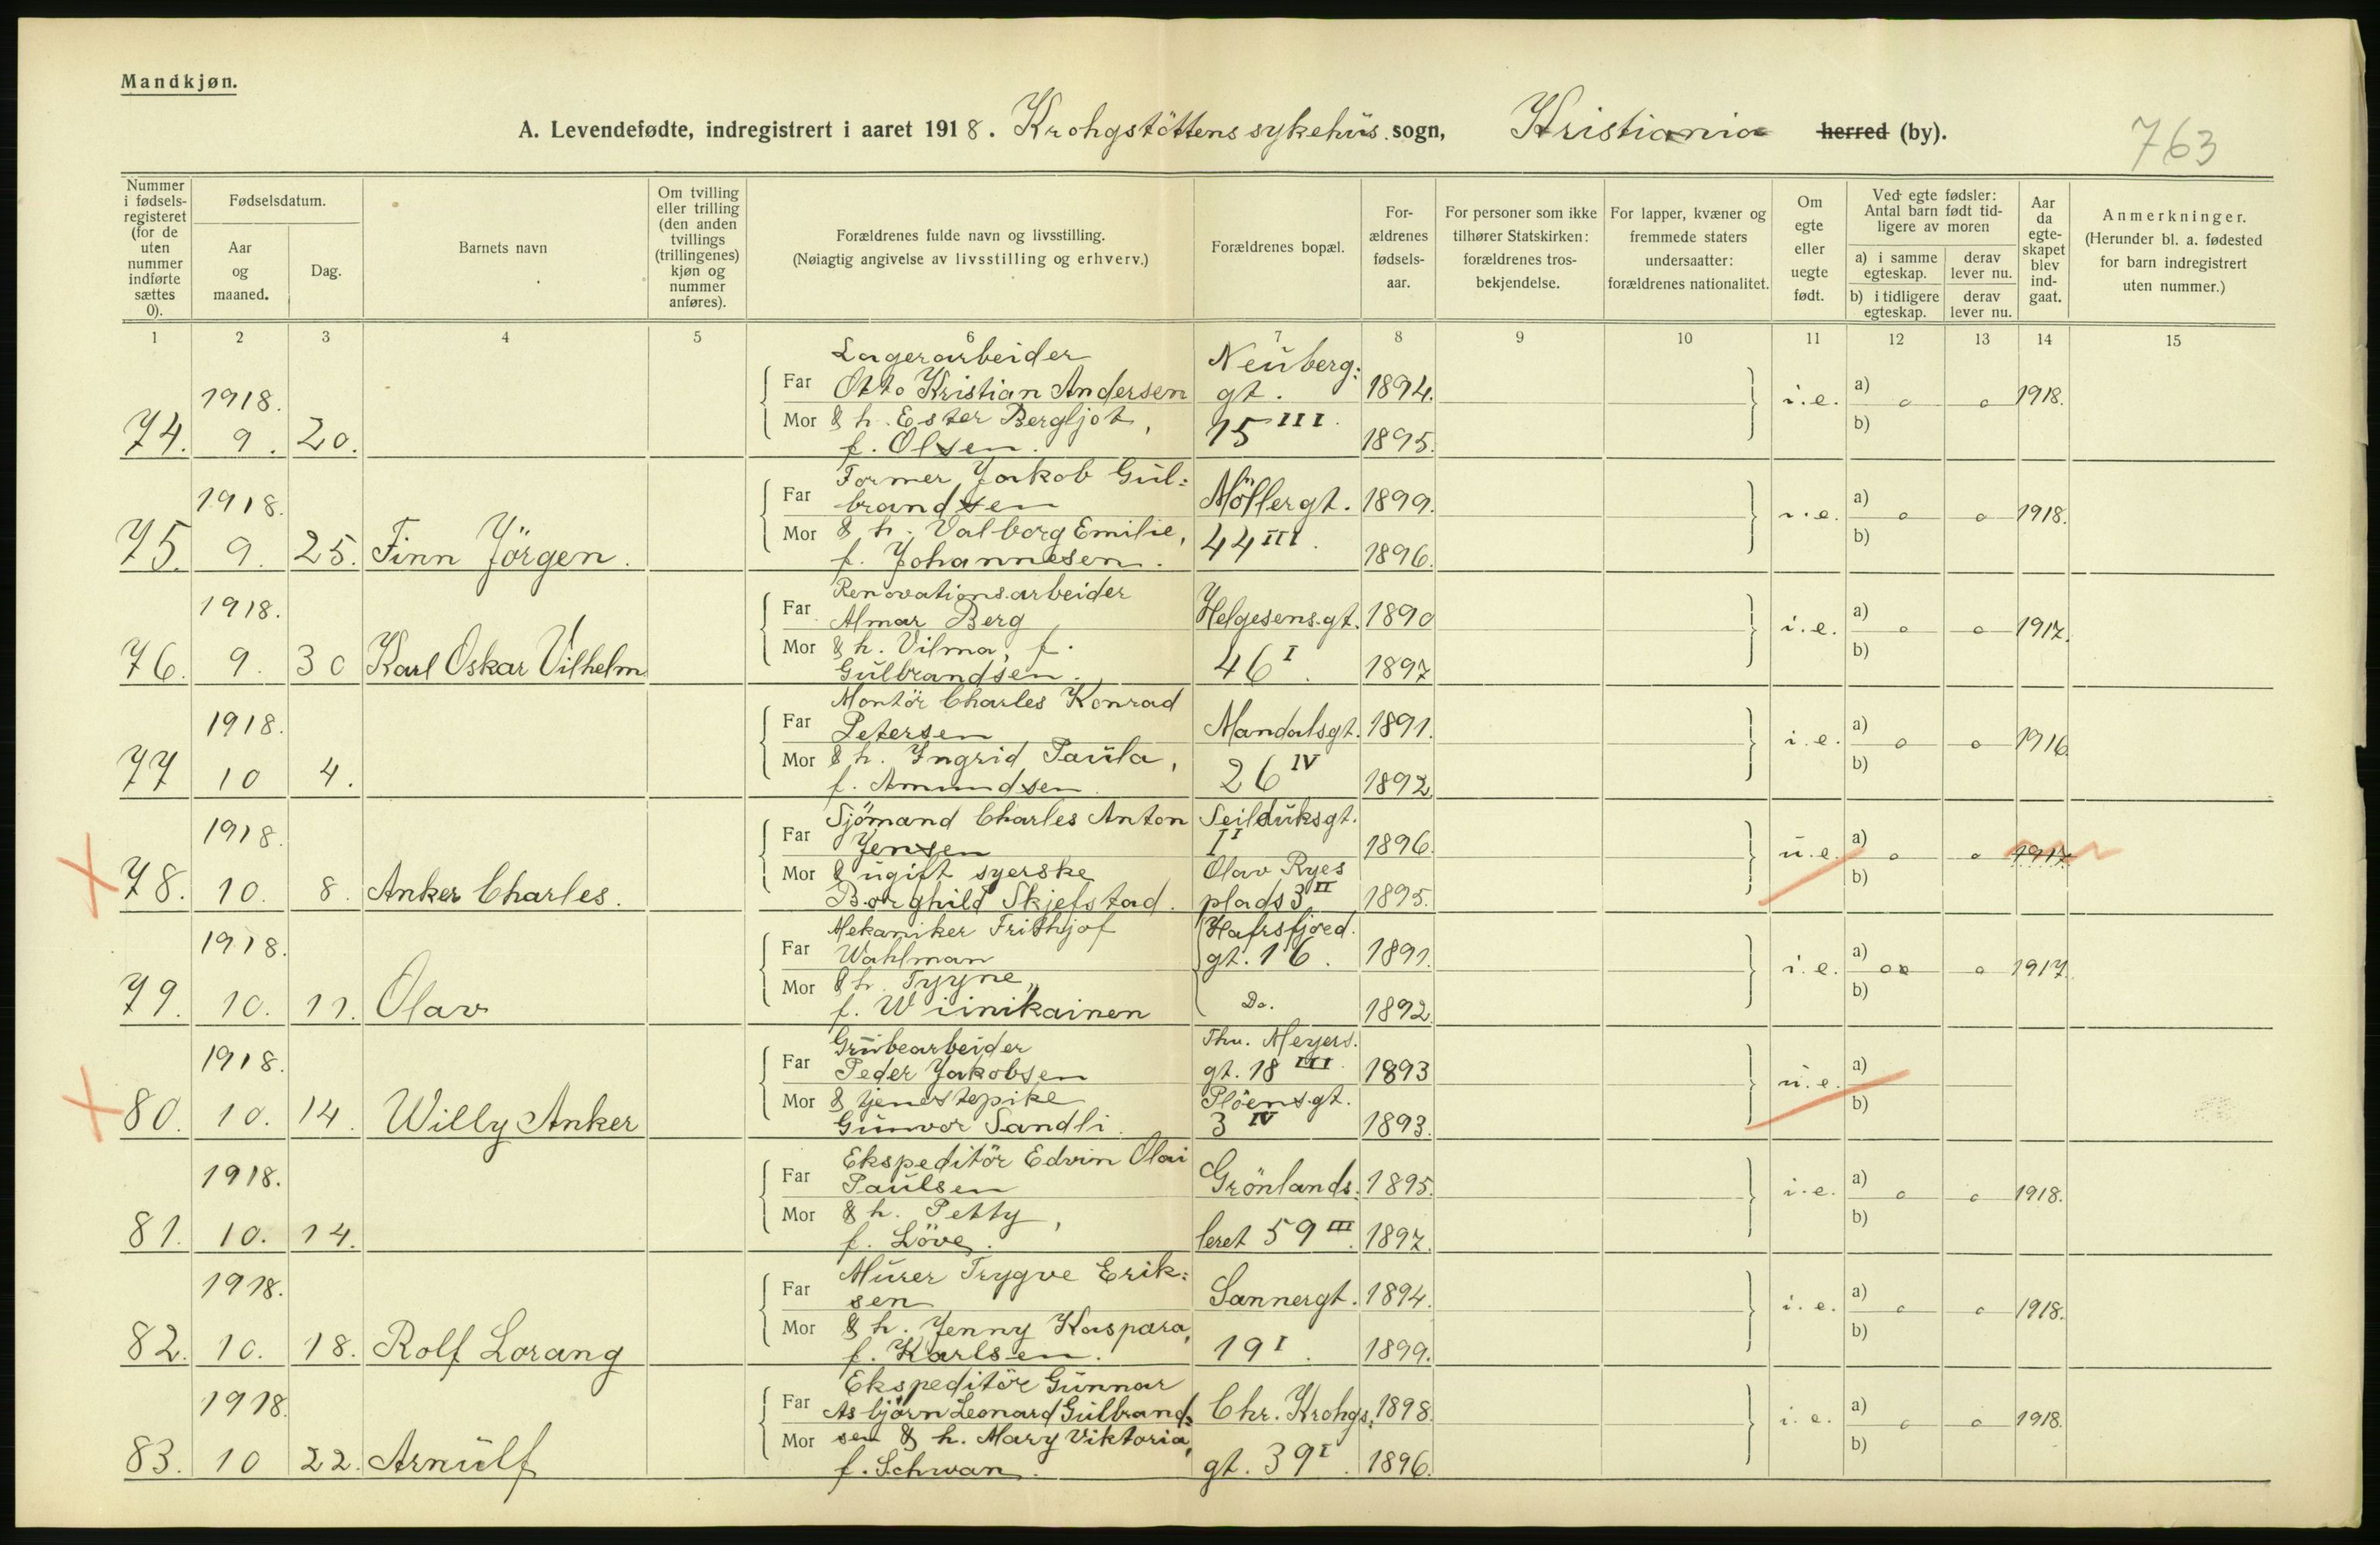 Mandkjøn.
A. Levendefødte, indregistrert i aaret 1918. Krohgstöttens sykehus. sogn, Kristiania herred (by).
763
Nummer i fødsels-registeret (for de uten nummer indførte sættes 0).
Fødselsdatum.
Aar og maaned.
Dag.
Barnets navn
Om tvilling eller trilling (den anden tvillings (trillingenes) kjøn og nummer anføres).
Forældrenes fulde navn og livsstilling.
(Nøiagtig angivelse av livsstilling og erhverv.)
Forældrenes bopæl.
For-ældrenes fødsels-aar.
For personer som ikke tilhører Statskirken: forældrenes tros-bekjendelse.
For lapper, kvæner og fremmede staters undersaatter: forældrenes nationalitet.
Om egte eller uegte født.
Ved egte fødsler: Antal barn født tid-ligere av moren
a) i samme egteskap.
derav lever nu.
b) i tidligere egteskap.
derav lever nu.
Aar da egte-skapet blev ind-gaat.
Anmerkninger.
(Herunder bl. a. fødested for barn indregistrert uten nummer.)
1 2 3 4 5 6 7 8 9 10 11 12 13 14 15
Lagerarbeider Neuberg:
1918. Far Otto Kristian Andersen gt. 1894. i.e. a) o o 1918.
Mor & h. Ester Bergljot, 15 III. b)
74. 9. 20. f. Olsen. 1895.
Former Jakob Gul:
1918. Far brandsen Möllergt. 1899. i.e. a) o o 1918.
Mor & h. Valborg Emilie, 44 III. b)
75. 9. 25. Finn Jörgen. f. Johannesen. 1896.
Renovationsarbeider
1918. Far Almar Berg Helgesens.gt. 1890 i.e. a) o o 1917.
Mor & h. Vilma, f. 46 I. b)
76. 9. 30 Karl Oskar Vilhelm Gulbrandsen. 1897
Montör Charles Konrad
1918. Far Petersen Mandalsgt. 1891. i.e. a) o o 1916
Mor & h. Ingrid Paula, 26 IV b)
77 10 4. f. Amundsen. 1892
Sjömand Charles Anton Seilduksgt.
1918. Far Jensen I 1896. u.e. a) o o 1917
Mor & ugift syerske Olav Ryes b)
78. 10. 8. Anker Charles. Borghild Skjefstad. plads 3 II 1895.
Mekaniker Frithjof Hafrsfjord.
1918. Far Wahlman gt. 16. 1891. i.e. a) o o 1917.
Mor & h. Tyyne, b)
79. 10. 11. Olav f. Wiinikainen Do. 1892
Grubearbeider Thv. Meyers.
1918. Far Peder Jakobsen gt. 18 III. 1893 u.e. a)
Mor & tjenestepike Plöens.gt. b)
80. 10. 14. Willy Anker Gunvor Sandli. 3 IV 1893.
Ekspeditör Edvin Olai
1918. Far Paulsen Grönlands: 1895. i.e. a) o o 1918.
Mor & h. Petty, b)
81. 10. 14. f. Löve. leret 59 III. 1897.
Murer Trygve Erik:
1918. Far sen Sannergt. 1894. i.e. a) o o 1918.
Mor & h. Jenny Kaspara, b)
82. 10. 18. Rolf Lorang f. Karlsen. 19 I. 1899.
Ekspeditör Gunnar
1918. Far Asbjörn Leonard Gulbrand: Chr. Krohgs: 1898. i.e. a) o o 1918.
Mor sen & h. Mary Viktoria, b)
83. 10 22. Arnulf f. Schwan. gt. 39 I. 1896.